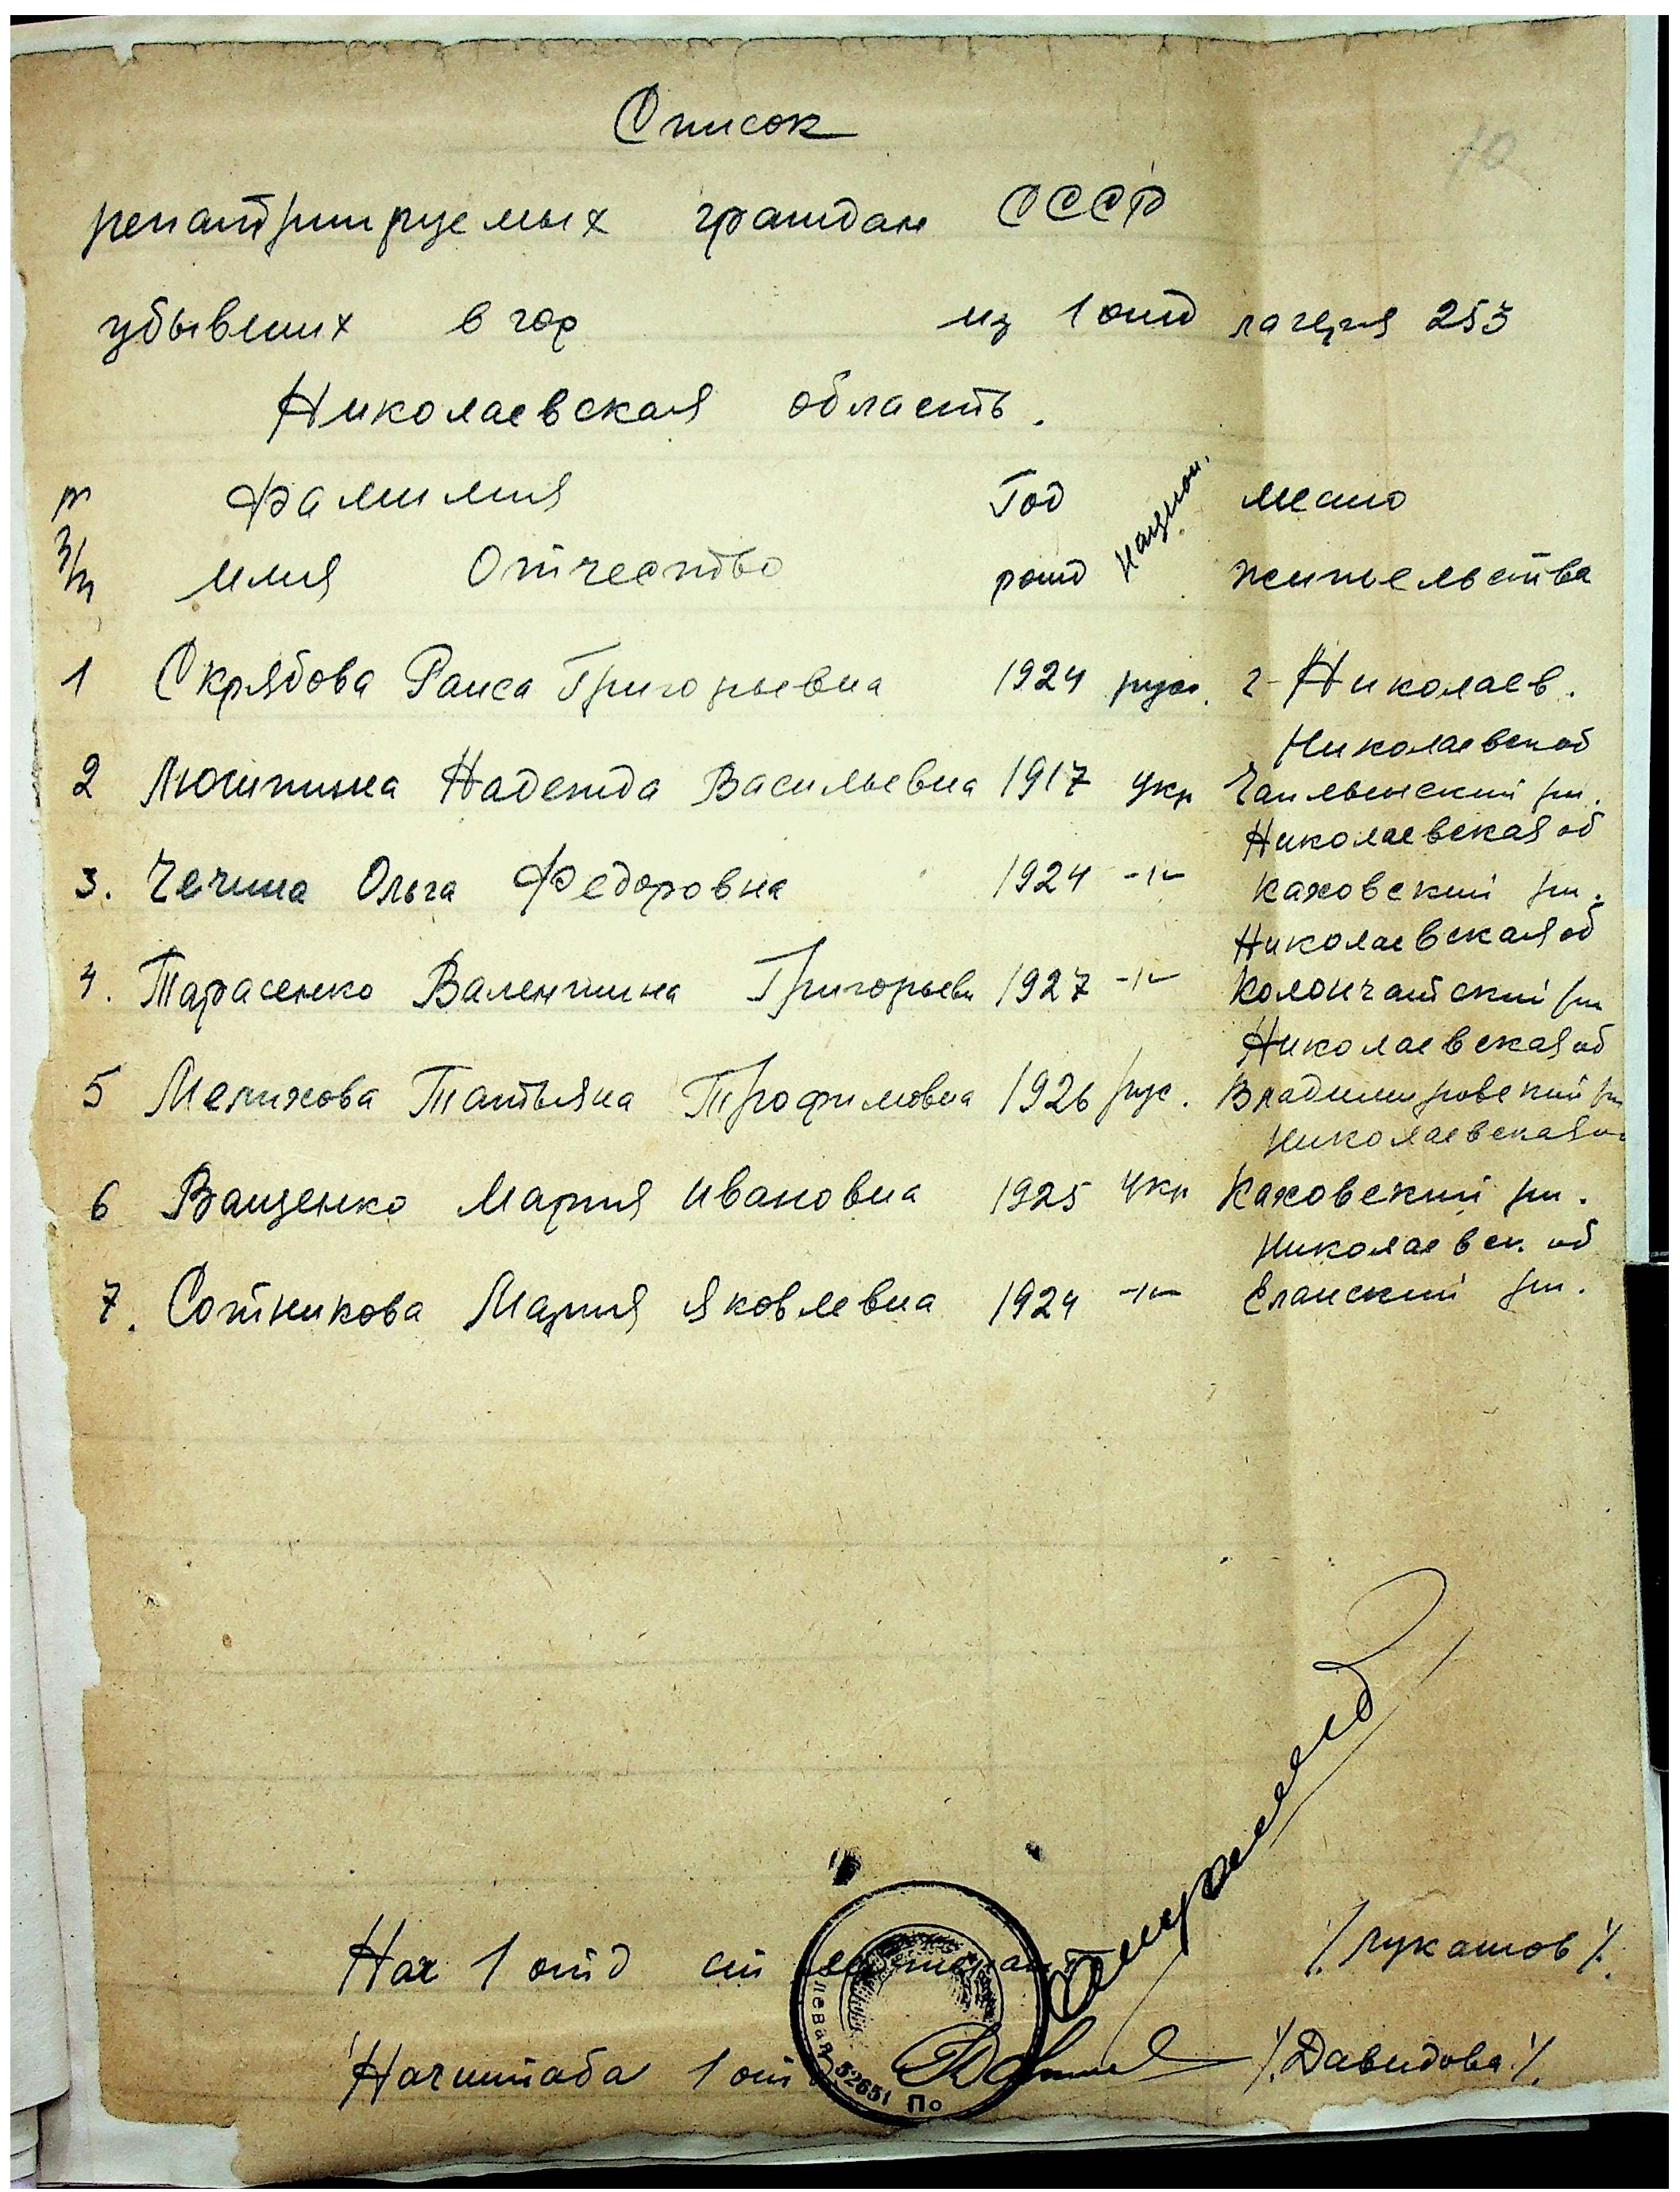 10
Список
репатриируемых граждан СССР
убывших в гор из 1 отд лагеря 253
Николаевская область.
N Фамилия Год национ. место
п/п имя Отчество рожд жительства
1 Скрябова Раиса Григорьевна 1924 рус. г-Николаев.
Николаевск об
2 Надежда Васильевна 1917 укр рн.
Николаевская об
3. Чечина Ольга Федоровна 1924 -"- Каховский рн.
Николаевская об
4. Тарасенко Валентина Григорьевн 1927 -"- Колончатский рн
Николаевская об
5 Мелихова Татьяна Трофимовна 1926 рус. Владимировский рн
Николаевская об
6 Ващенко Мария Ивановна 1925 укр Каховский рн.
Николаевск. об
7. Сотникова Мария Яковлевна 1924 -"- Еланский рн.
Нач 1 отд ст лейтенант /.Лукашов/.
Начштаба 1 отд /.Давидова/.
левая 52651 По